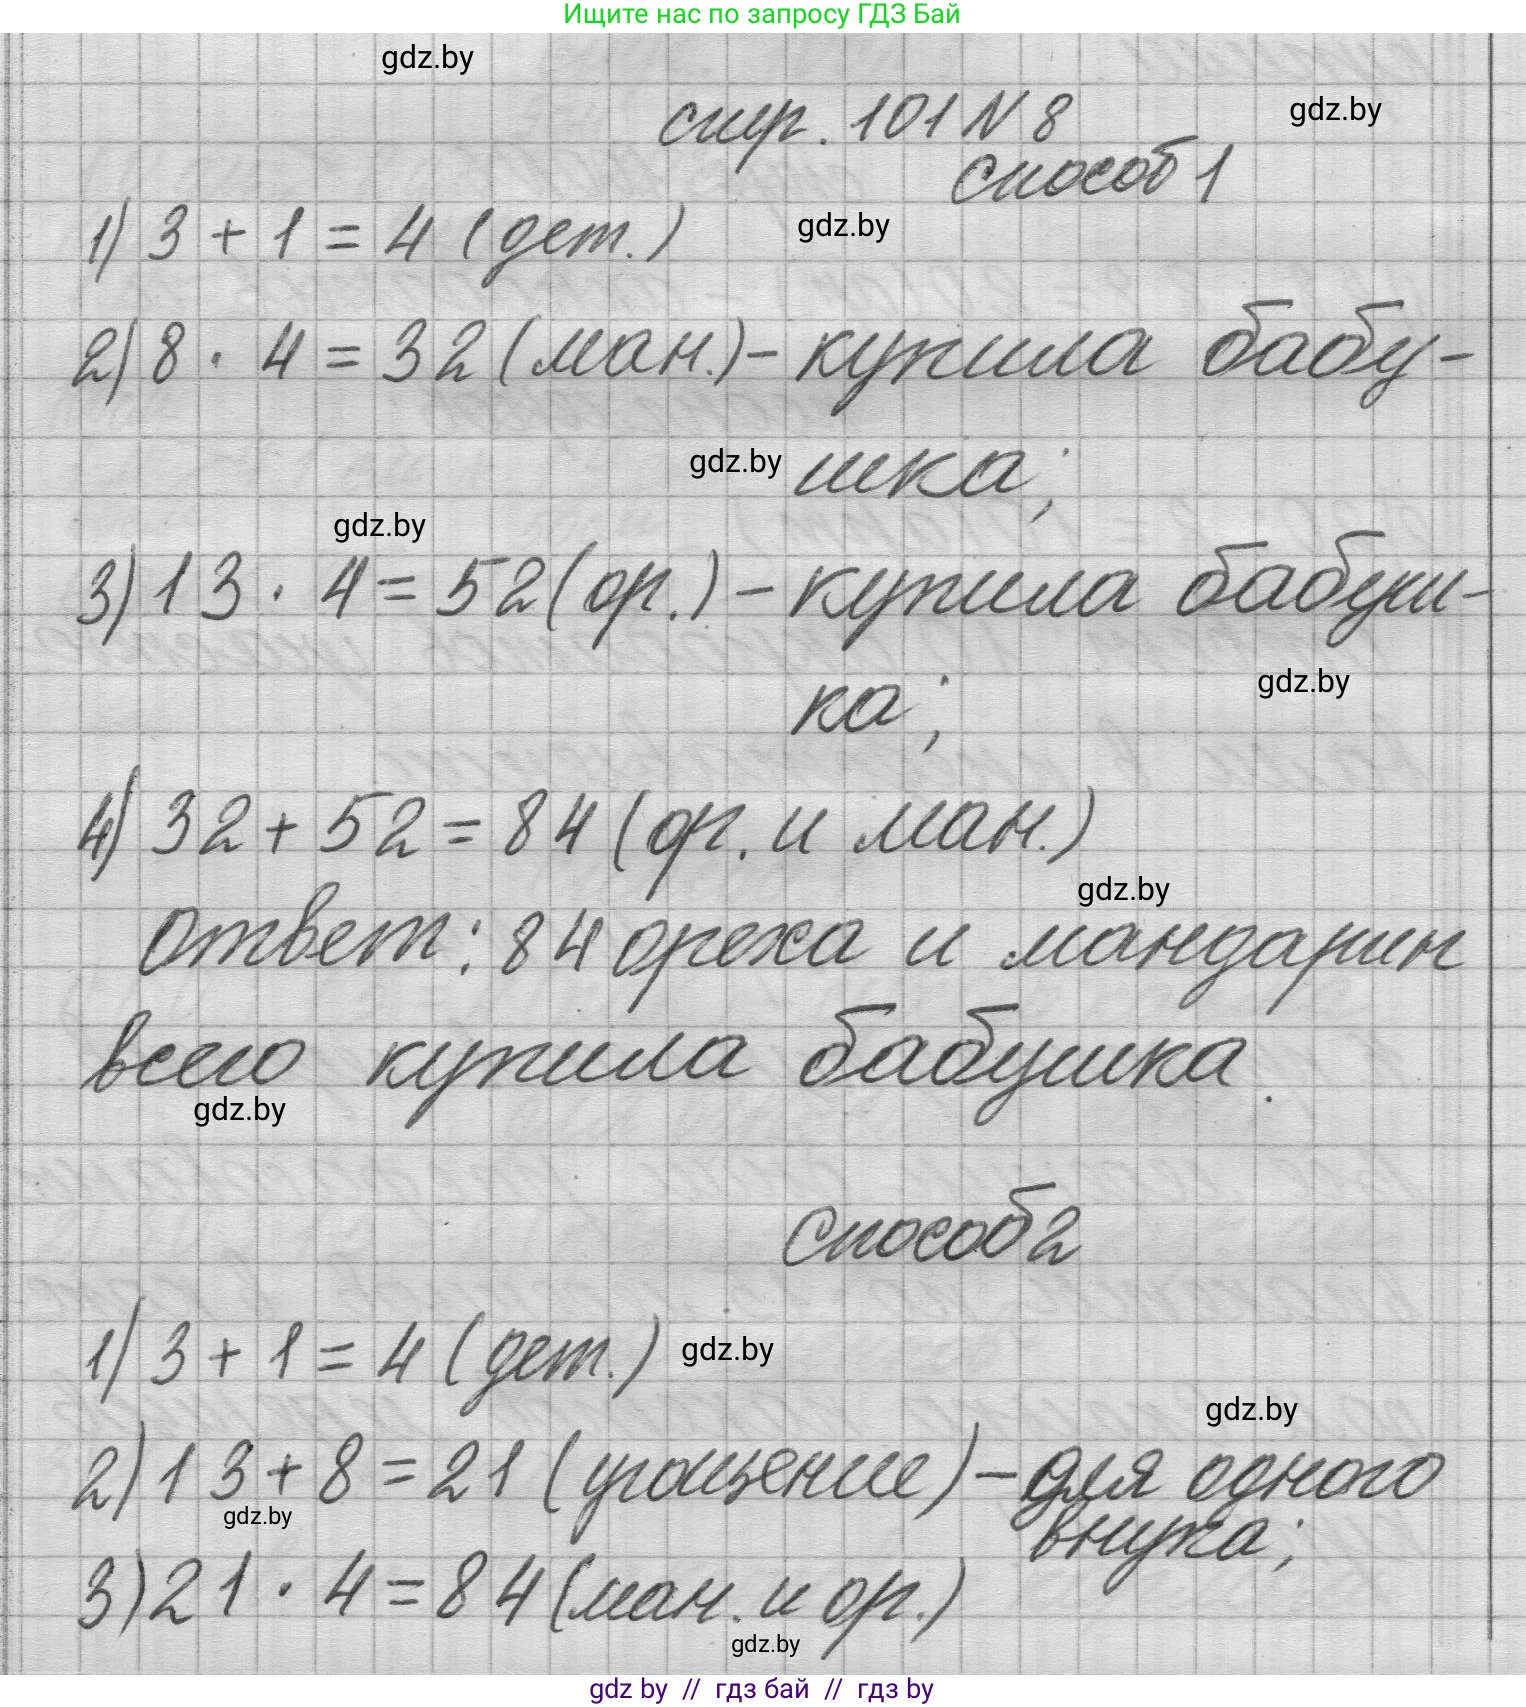 Ищите нас по запросу ГДЗ Бай
gdz.by
стр. 101 N 8
gdz.by
способ 1
1) 3 + 1 = 4 (дет.)
gdz.by
2) 8 · 4 = 32 (ман.) - купила бабу-
gdz.by
шка;
gdz.by
3) 13 · 4 = 52 (ор.) - купила бабуш-
gdz.by
ка;
4) 32 + 52 = 84 (ор. и ман.)
gdz.by
Ответ: 84 ореха и мандарин
всего купила бабушка.
gdz.by
способ 2
1) 3 + 1 = 4 (дет.)
gdz.by
gdz.by
2) 13 + 8 = 21 (угощение) - для одного
gdz.by
внука;
3) 21 · 4 = 84 (ман. и ор.)
gdz.by
gdz by // гдз бай // гдз by